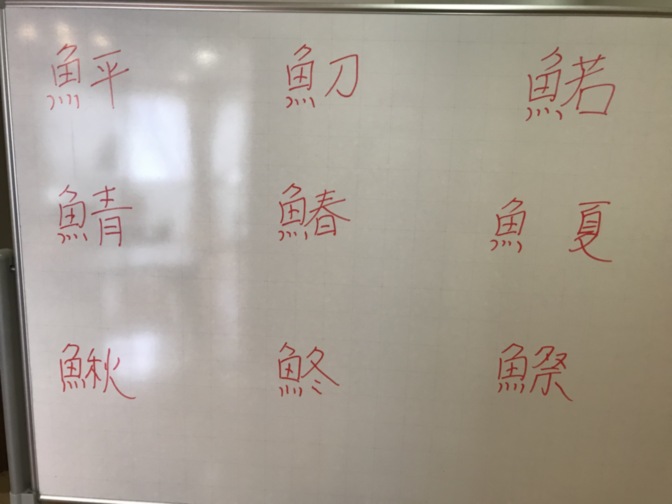 鮃 魛 鰙
鯖 鰆 魚夏
鰍 鮗 鰶